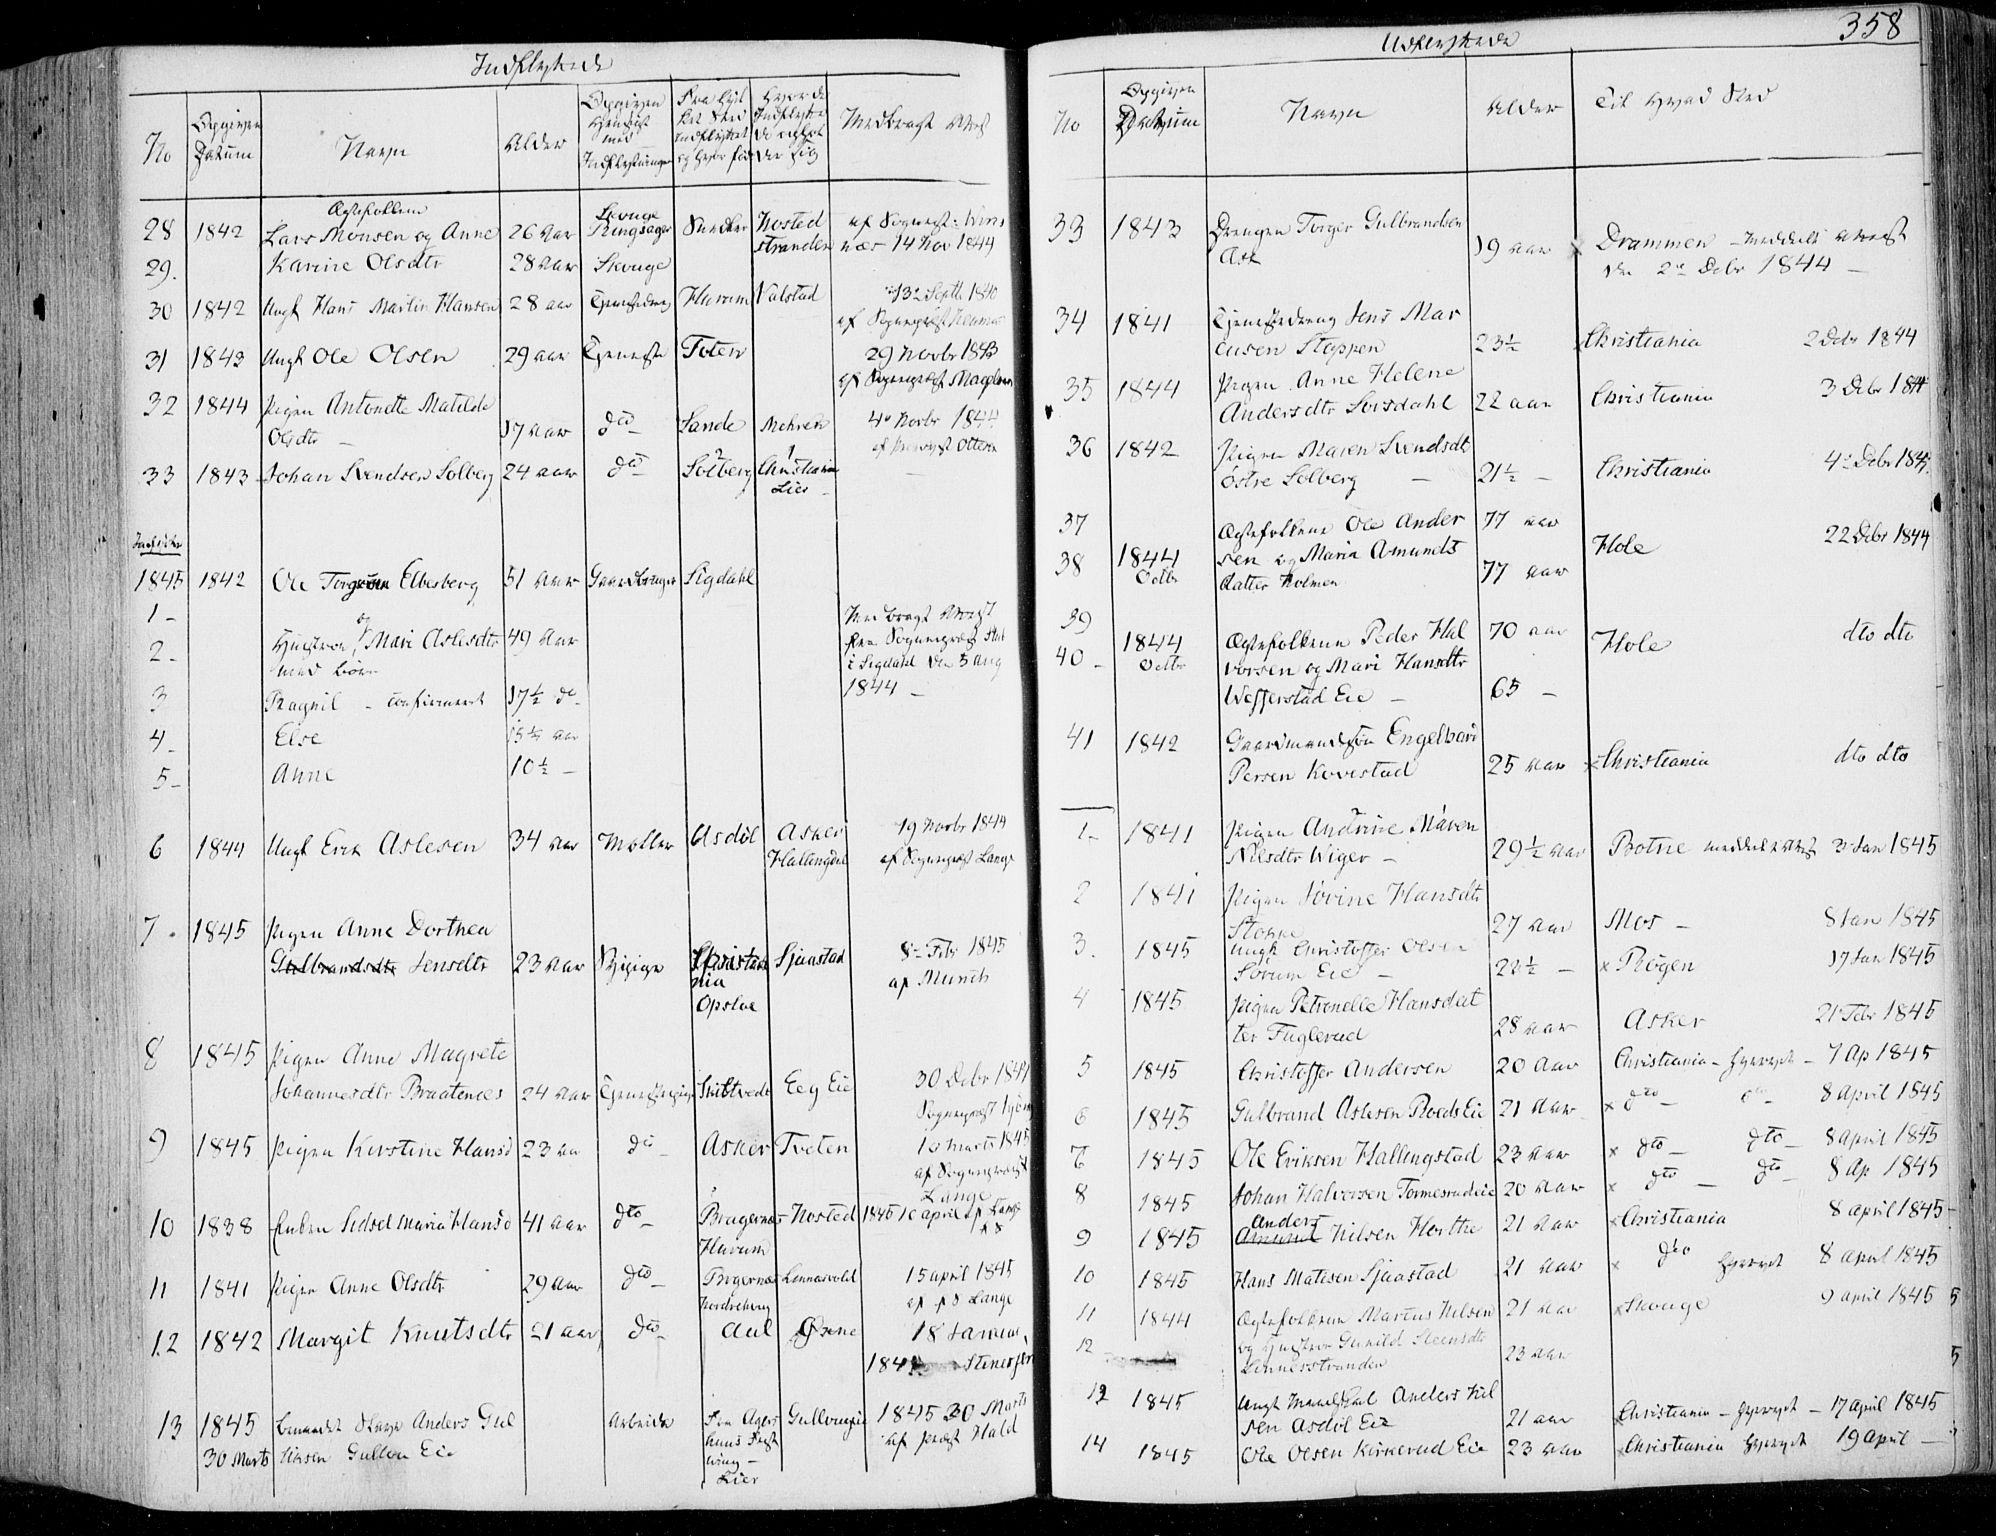 Indflyttede
No
Opgiven Datum
Navn
Alder
Opgiven Hensigt med Indflytningen
Fra hvil
ket Sted
Indflyttet
og hvor fød
Hvor de
Indflytte
de opholder sig
Medbragt Attest
Ægtefolkene
28 1842 Lars Monsen og Anne 26 Aar Skouge Ringsager Nosted stranden af Sognepr: 14 Nov 1844
29. Karine Olsdtr 28 Aar Skouge
30 1842 Ungk Hans Martin Hansen 28 aar Hurum Valstad 13 Septb 1840
af Sogneprst
31 1843 Ungk Ole Olsen 29 aar Tjeneste Toten 29 Novbr 1843
af Sogneprst
32 1844 Pigen Antonette Matilde
Olsdtr — 17 Aar dto Sande Mehren 4de Novbr 1844
af Provst Ottesen
33 1843 Johan Svendsen Solberg 24 aar dto Solberg Christiania
Lier —
1845 1842 Ole Elbesberg 51 Aar Gaardbruger Sigdahl
1 -
2 - Hustroe Mari Aslesdtr 49 Aar
med børn
Medbragt Attest
fra Sogneprst
i Sigdahl den 5 Aug
1844 —
3 Ragnil - confirmeret 17½ do
4 - Else 15½ aar
5 - Anne 10½ —
6 1844 Ungk Erik Aslesen 34 Aar Møller Asdøl Asker
Hallingdal 19 Novbr 1844
af Sogneprst Lange
7 - 1845 Pigen Anne Dorthea
Gulbrandsdtr Jensdtr 23 Aar Christiania
Opsloe Sjaastad 8de Febr 1845
af Munch
8 1845 Pigen Anne Magrete
Johannesdtr Braatenes 24 Aar Tjenestepige Skibtvedt Eeg Eie 30 Decbr 1844
Sogneprst
9 1845 Pigen Kirstine Hansd 23 aar do Asker Tveten 10 Marts 1845
af Sogneprest
Lange
10 1838 Enken Sidsel Maria Hansd 41 aar dto — Bragernæs
Hurum Nosted 1845 10 april af Lange
11 1841 Pigen Anne Olsdtr 29 Aar dto —
Norderhoug Lennasvold 15 april 1845
af Lange
12 1842 Margit Knutsdtr 21 aar dto — Aal 18 Januar
184 Stenersen
13 1845
30 Marts Anders Gul
liksen Gullou Eie Arbeide Fra Agers
huus Fæst
ning —
Lier 1845 30 Marts
af Prest Hald
Udflyttede
358
No
Opgiven
Datum
Navn
Alder
Til hvad Sted
33 1843 Drengen Torger Gulbrandsen
Ask 19 aar x Drammen — meddelt Attest
den 2de Decbr 1844 —
34 1841 Tjenestedreng Jens Mar
cusen Stoppen 23½ x Christiania 2 Decbr 1844
35 1844 Pigen Anne Helene
Andersdtr Sørsdahl 22 aar Christiania 3 Decbr 1844
36 1842 Pigen Maren Svendsdtr
Østre Solberg — 21½ — Christiania 4de Decbr 1844
37
38 1844
Octbr Ægtefolkene Ole Ander
sen og Maria Amunds
datter Holmen 77 aar
77 aar Hole 22 Decbr 1844
39
40 - 1844
Octbr Ægtefolkene Peder Hal
vorsen og Mari Hansdtr
Wefferstad Eie — 70 aar
65 — Hole dto dto
41 1842 Gaardmandssøn Engelbart
Persen Kovestad 25 Aar x Christiania dto dto
1 - 1841 Pigen Andrine Maren
Nilsdtr Wiger — 29½ Aar Botne meddelt Attest 3 Jan 1845
2 1841 Pigen Jørine Hansdtr
Stoppe 27 Aar Mos — 8 Jan 1845
3. 1845 Ungk Christoffer Olsen
Sørum Eie — 22½ — x Røgen 17 Jan 1845
4 1845 Pigen Petronelle Hansdat
ter Fuglerud 28 Aar Asker 21 Febr 1845
5 1845 Christoffer Andersen 20 Aar Christiania — — 7 Ap 1845
6 1845 Gulbrand Aslesen Roeds Eie 21 Aar x dto — dto — 8 April 1845
7 1845 Ole Eriksen Hallingstad 23 Aar x dto — dto — 8 april 1845
8 1845 Johan Halvorsen Tømesrudeie 20 Aar x dto — dto — 8 Ap 1845
9 1845 Anders
Amund Nilsen Horthe 21 Aar x Christiania 8 april 1845
10 1845 Hans Matisen Sjaastad 21 Aar x dto 8 april 1845
11 1844 Ægtefolkene Marcus Nilsen 21 Aar x Skouge 9 april 1845 5
12 og Hustroe Gunild Steensdtr
Linnesstranden 23 Aar 5
12 1845 Anders Nil
sen Asdøl Eie 21 aar x Christiania — — 17 april 1845
14 1845 Ole Olsen Kirkerud Eie 23 Aar x Christiania 19 april —